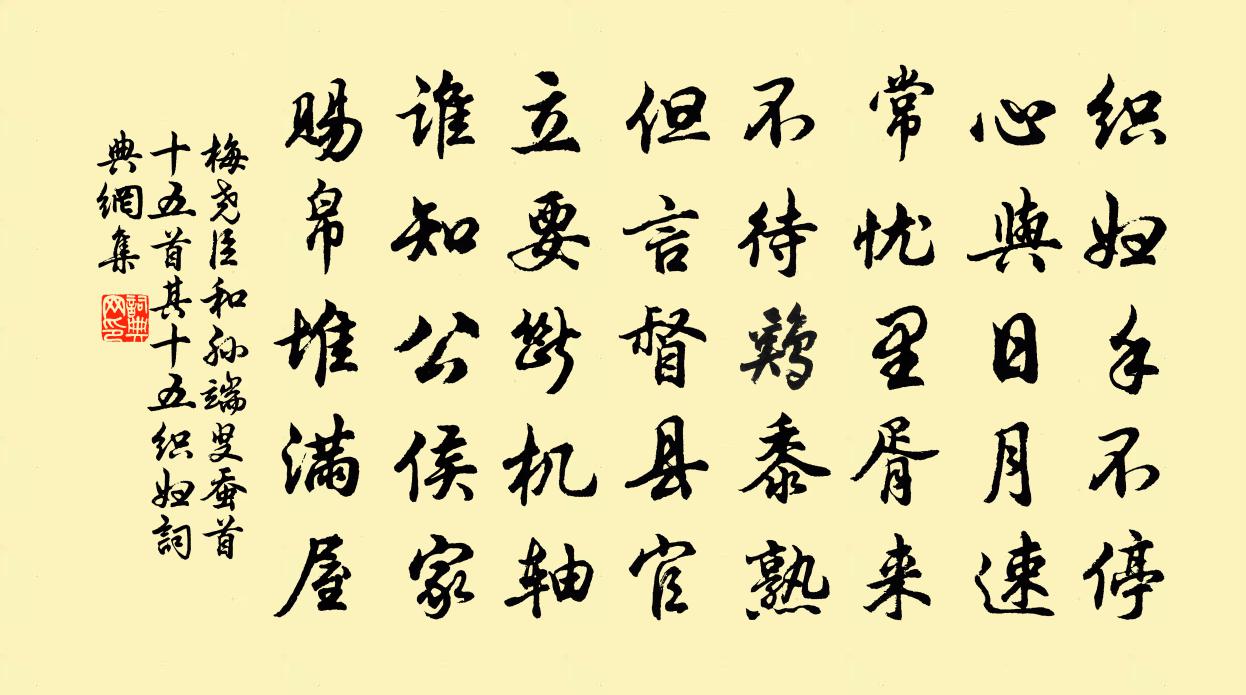 织妇手不停
心與日月速
常忧里胥来
不待鷄黍熟
但言督县官
立要断机轴
谁知公侯家
赐帛堆满屋
梅尧臣和孙端叟蚕首
十五首其十五织妇詞
典網集
詞典网印